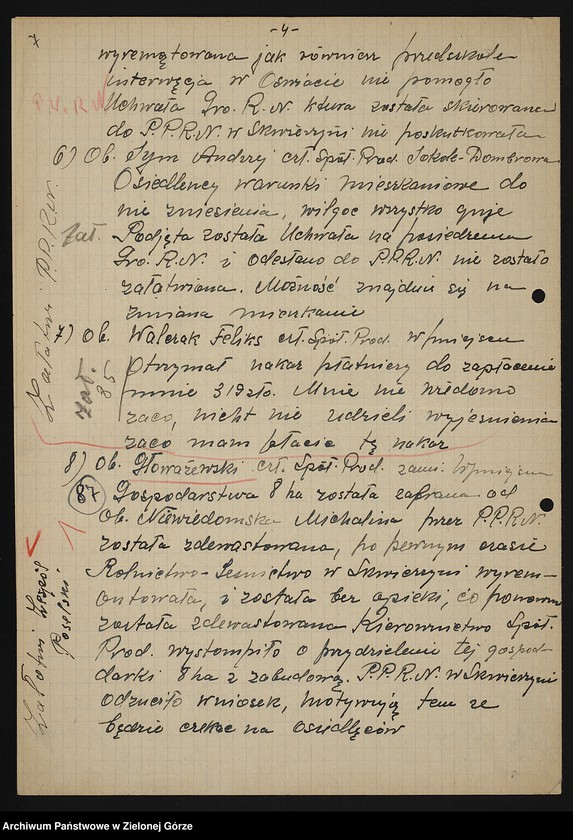 -4-
x
wyremątowana jak równiesz przedszkole
interwęcja w Oswiacie nie pomogło
P.W.R.N
Uchwała Gro. R.N. ktura została skierowana
do P.P.R.N. w Skwierzyni nie poskutkowała
6) Ob. Tym Andrzej czł. Spół. Prod. Sokole-Dombrowa
Osiedlency warunki mieszkaniowe do
nie zniesienia, wilgoc wszystko gnije
zał.
Podjęta została Uchwała na posiedzeniu
Gro. R.N. i Odesłano do P.P.R.N. nie zostało
załatwiona. Możność znajduji się na
zmiana mieszkanie
Załatwi P.P.R.N.
7) Ob. Walczak Feliks czł. Spół. Prod. w/miejscu
Otrzymał nakaz płatniczy do zapłacenia
zał. 85
summie 319zło. Mnie nie wiedomo
zaco, nicht nie udzieli wyjesnienia
zaco mam płacic tę nakaz
8) Ob. Głoważewski czł. Spół. Prod. zami. W/miejscu
87
Gospodarstwa 8 ha została zabrana od
Ob. Niewiedomska Michalina przez P.P.R.N.
została zdewastowana, po pewnym czasie
Rolnictwo-Lesnictwo w Skwierzyni wyrem-
ontowała, i została bez opieki, co ponownie
została zdewastowana Kierownictwo Spół.
Prod. wystompiło o przydzielenie tej gospo-
darki 8 ha z zabudową. P.P.R.N. w Skwierzyni
odzuciło wniosek, motywują tem ze
będzie czekac na Osiedlęców
Załatwi Zespół
Poselski
Archiwum Państwowe w Zielonej Górze